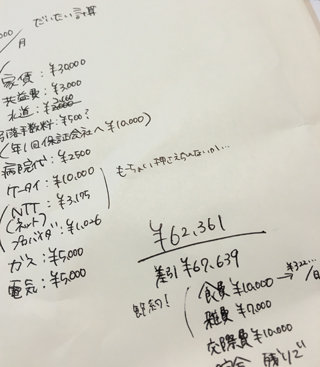 だいたい計算
000/月
家賃：¥30,000
共益費：¥3,000
水道：¥2,160
引落手数料：¥500?
(年1回保証会社へ¥10,000)
病院代：¥2500
ケータイ：¥10,000
NTT：¥3,175
(ネット)
プロバイダ：¥1,026
もちょい押さえられないか…
ガス：¥5,000
電気：¥5,000
¥62,361
差引 ¥67,639
節約！
食費 ¥10,000 → ¥322…/日
雑費 ¥7,000
交際費 ¥10,000
残りで